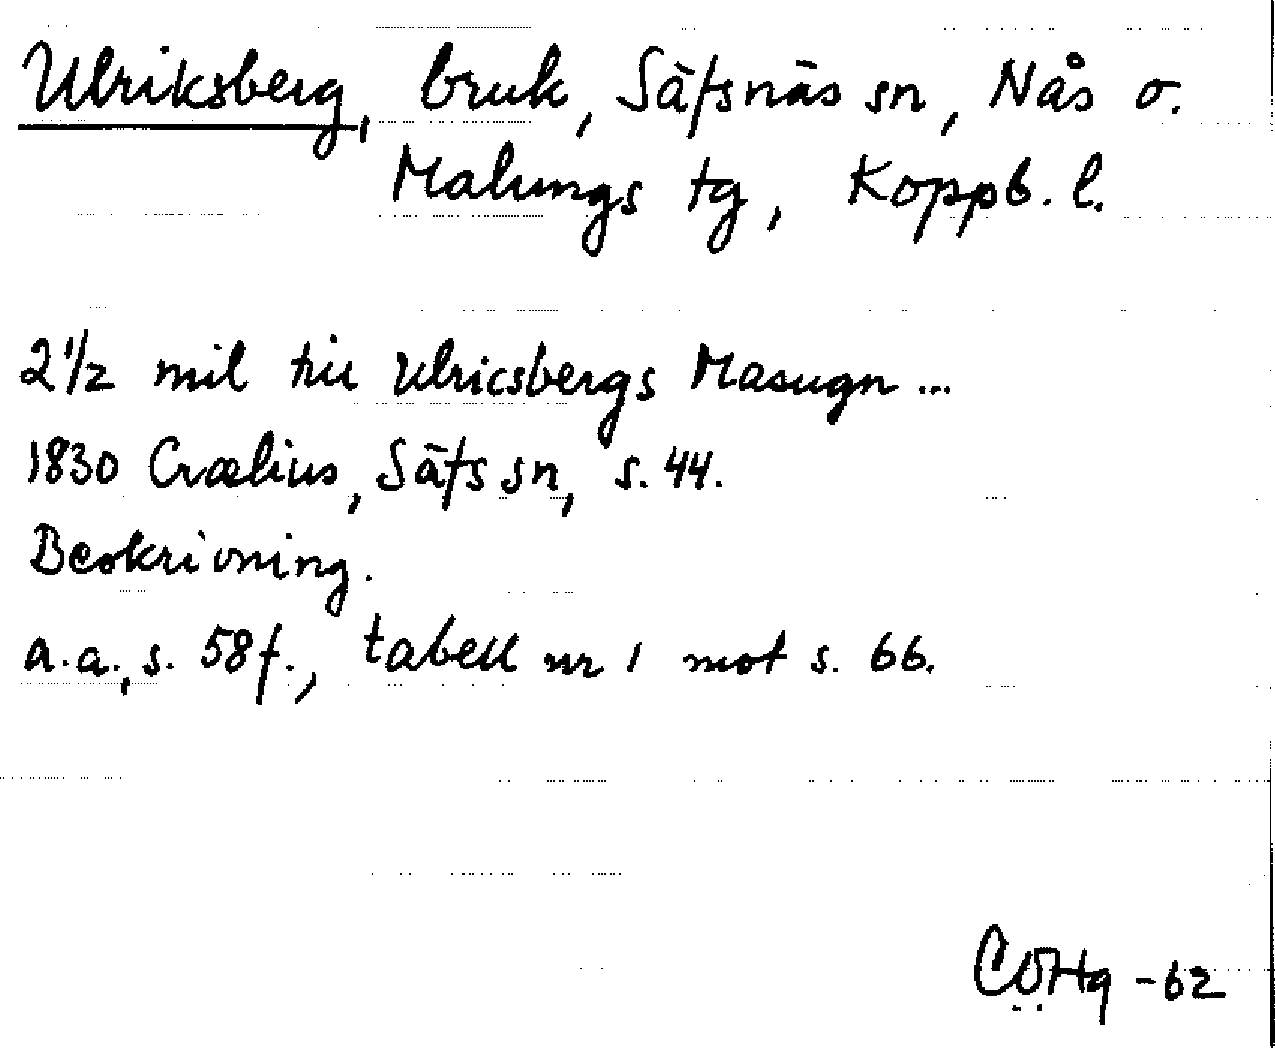 Ulriksberg, bruk, Säfsnäs sn, Nås o.
Malungs tg, Koppb. l.
2 1/2 mil till Ulricsbergs Masugn ...
1830 Crælius, Säfs sn, s. 44.
Beskrivning.
a.a., s. 58 f., tabell nr 1 mot s. 66.
-62